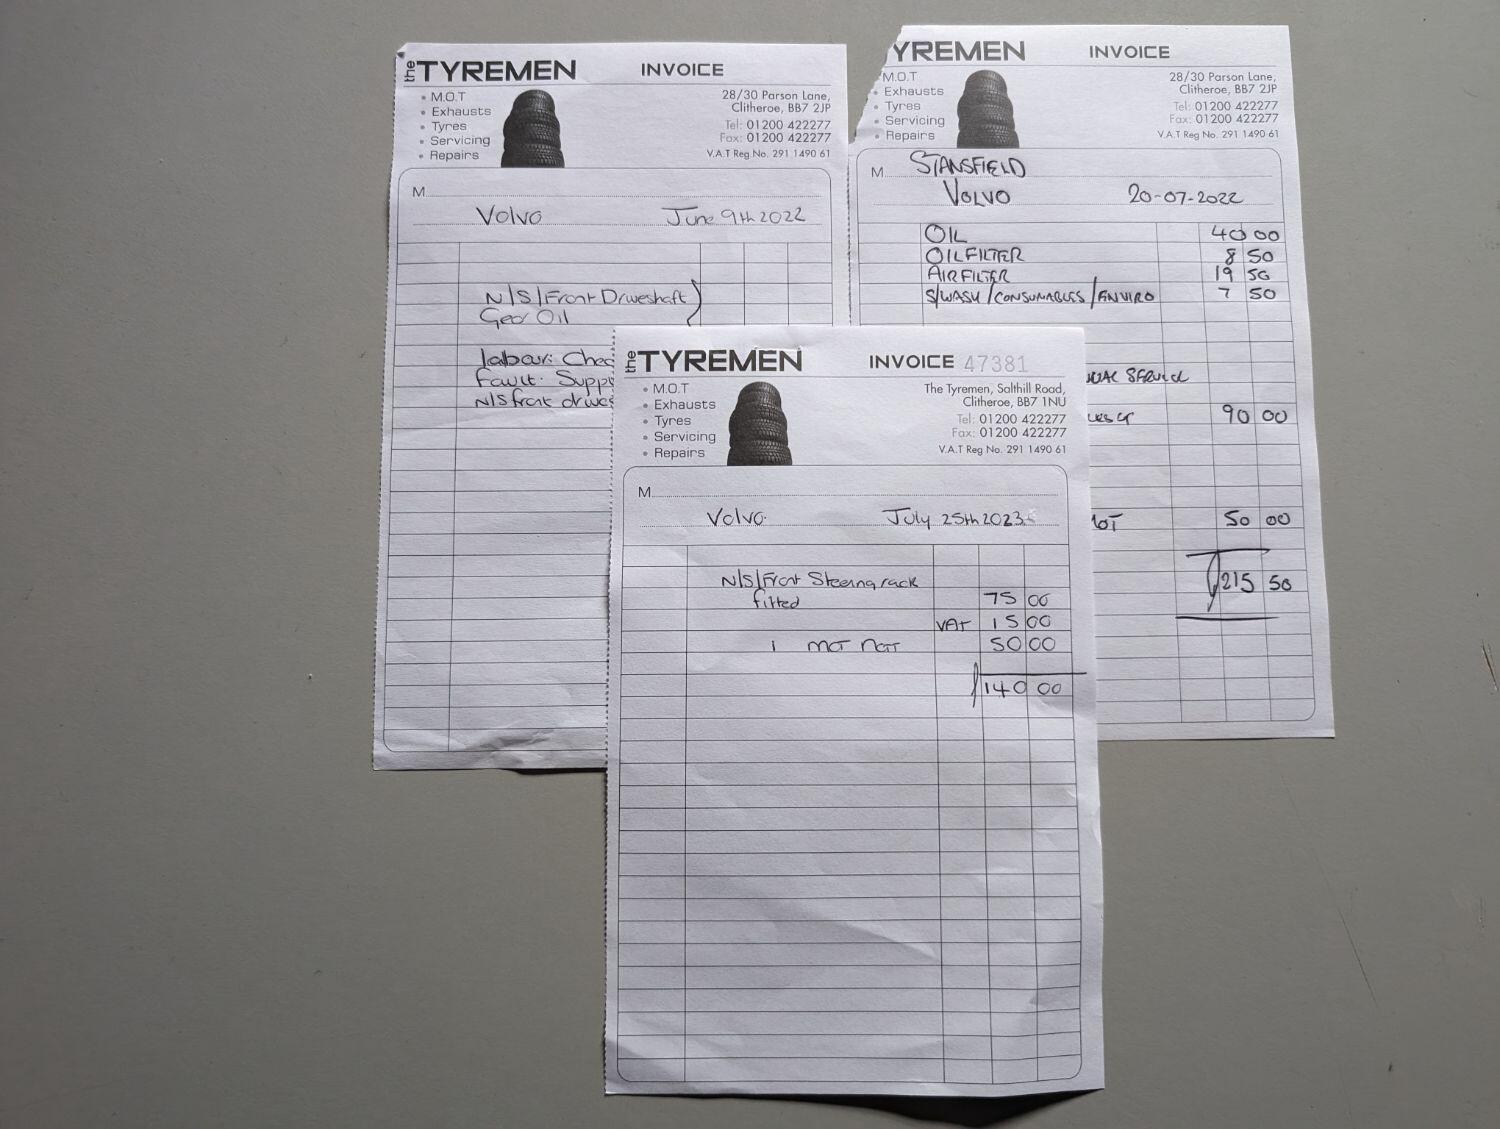 the TYREMEN INVOICE
• M.O.T
• Exhausts
• Tyres
• Servicing
• Repairs
28/30 Parson Lane,
Clitheroe, BB7 2JP
Tel: 01200 422277
Fax: 01200 422277
V.A.T Reg No. 291 1490 61
M
Volvo June 9th 2022
N/S/Front Driveshaft
Gear Oil
labour: Chec
Fault: Supp
N/S front drives
YREMEN INVOICE
M.O.T
• Exhausts
• Tyres
• Servicing
• Repairs
28/30 Parson Lane,
Clitheroe, BB7 2JP
Tel: 01200 422277
Fax: 01200 422277
V.A.T Reg No. 291 1490 61
M STANSFIELD
VOLVO 20-07-2022
OIL 40 00
OILFILTER 8 50
AIRFILTER 19 50
S/WASH/CONSUMABLES/ENVIRO 7 50
SERVICE
90 00
MOT 50 00
215 50
the TYREMEN INVOICE 47381
• M.O.T
• Exhausts
• Tyres
• Servicing
• Repairs
The Tyremen, Salthill Road,
Clitheroe, BB7 1NU
Tel: 01200 422277
Fax: 01200 422277
V.A.T Reg No. 291 1490 61
M
Volvo July 25th 2023
N/S/Front Steering rack
fitted 75 00
VAT 15 00
1 MOT 50 00
140 00